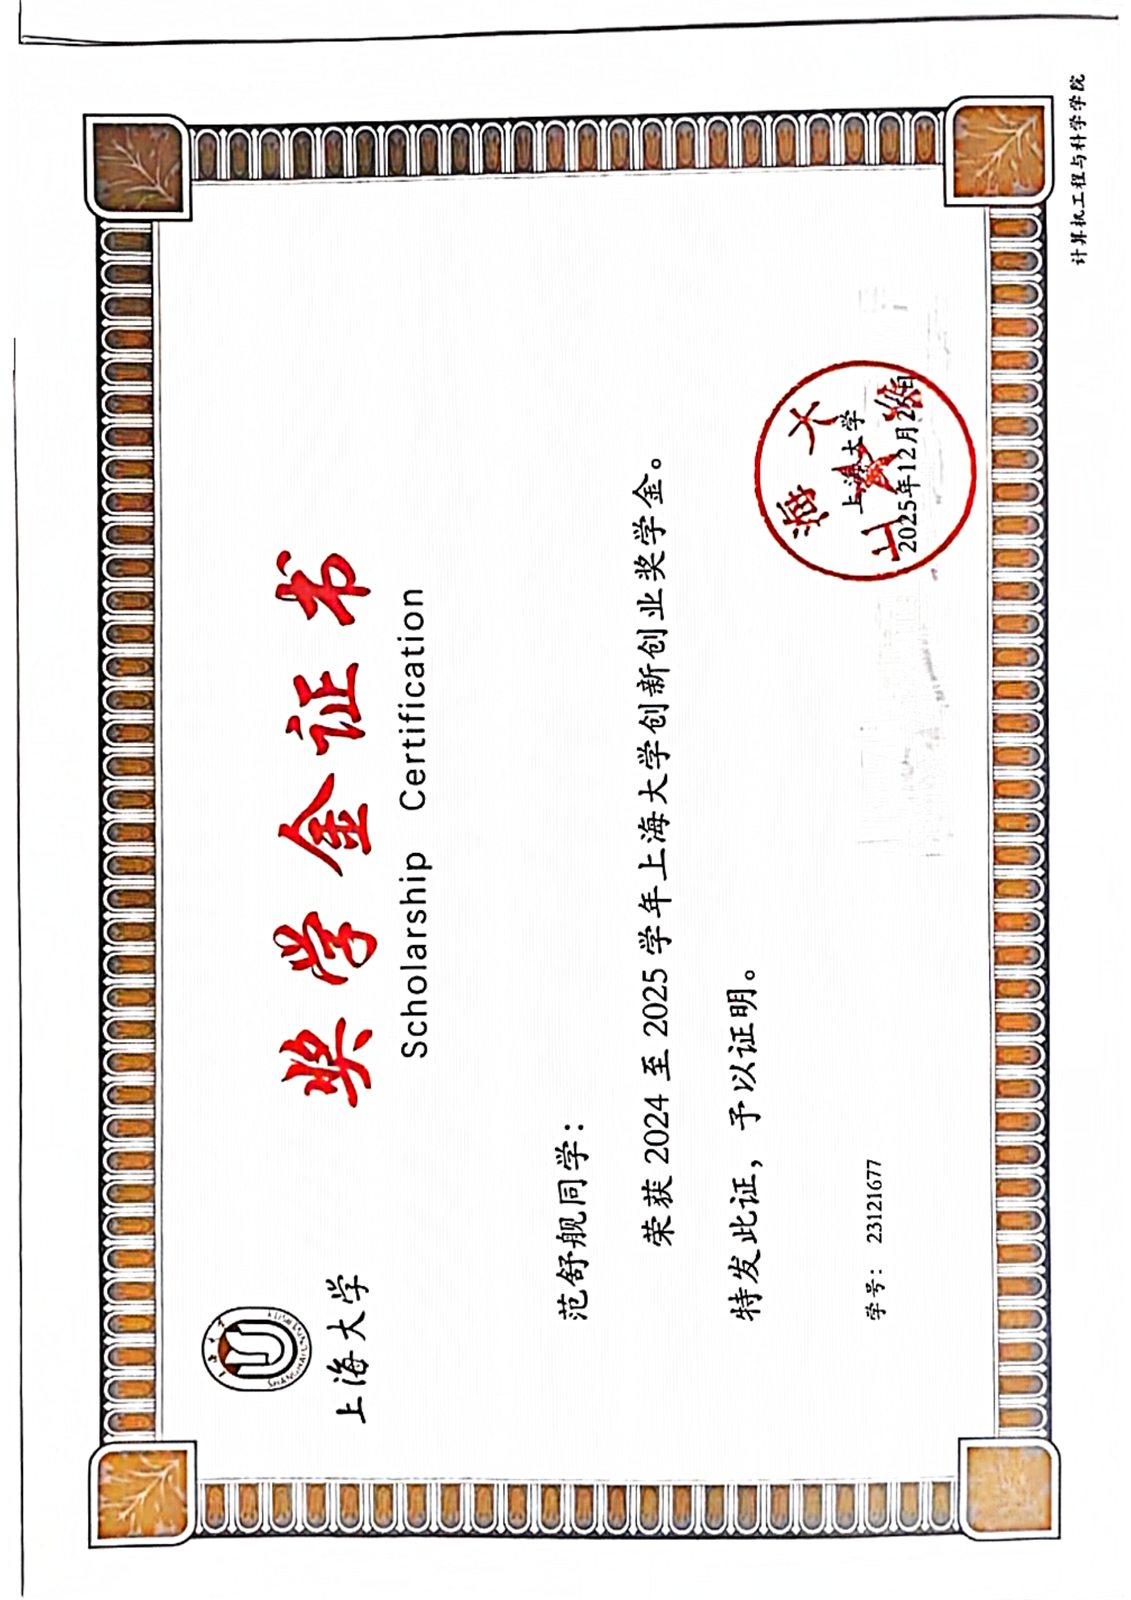 上海大学
奖学金证书
Scholarship Certification
范舒舰同学：
荣获 2024 至 2025 学年上海大学创新创业奖学金。
特发此证，予以证明。
学号： 23121677
上海大学
2025年12月26日
上海大
计算机工程与科学学院